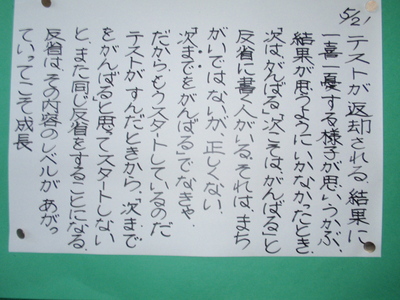 5/21
テストが返却される。結果に
一喜一憂する様子が思いうかぶ、
結果が思うようにいかなかったとき、
「次はがんばる」「次こそはがんばる」と
反省に書く人がいる。それは、まち
がいではないが、正しくない。
「次までをがんばる」でなきゃ。
だから、もうスタートしているのだ
テストがすんだときから、「次まで
をがんばる」と思ってスタートしない
と、また同じ反省をすることになる。
反省は、その内容のレベルが あがっ
ていってこそ成長